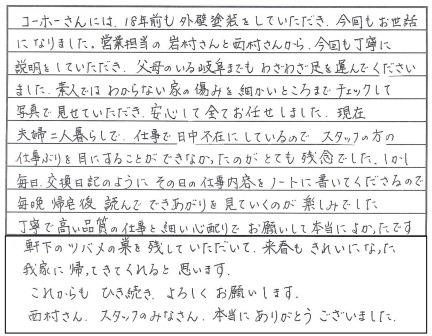 コーホーさんには、18年前も外壁塗装をしていただき、今回もお世話
になりました。営業担当の岩村さんと西村さんから、今回も丁寧に
説明をしていただき、父母のいる岐阜までもわざわざ足を運んでください
ました。素人ではわからない家の傷みを細かいところまでチェックして
写真で見せていただき、安心して全てお任せしました。現在
夫婦二人暮らしで、仕事で日中不在にしているので スタッフの方の
仕事ぶりを目にすることができなかったのがとても残念でした。しかし
毎日、交換日記のように その日の仕事内容をノートに書いてくださるので
毎晩 帰宅後、読んで できあがりを見ていくのが楽しみでした
丁寧で高い品質の仕事と細い心配りで お願いして本当によかったです
軒下のツバメの巣を残していただいて、来春もきれいになった
我家に帰ってきてくれると思います。
これからも ひき続き よろしく お願いします。
西村さん、スタッフのみなさん、本当にありがとうございました。